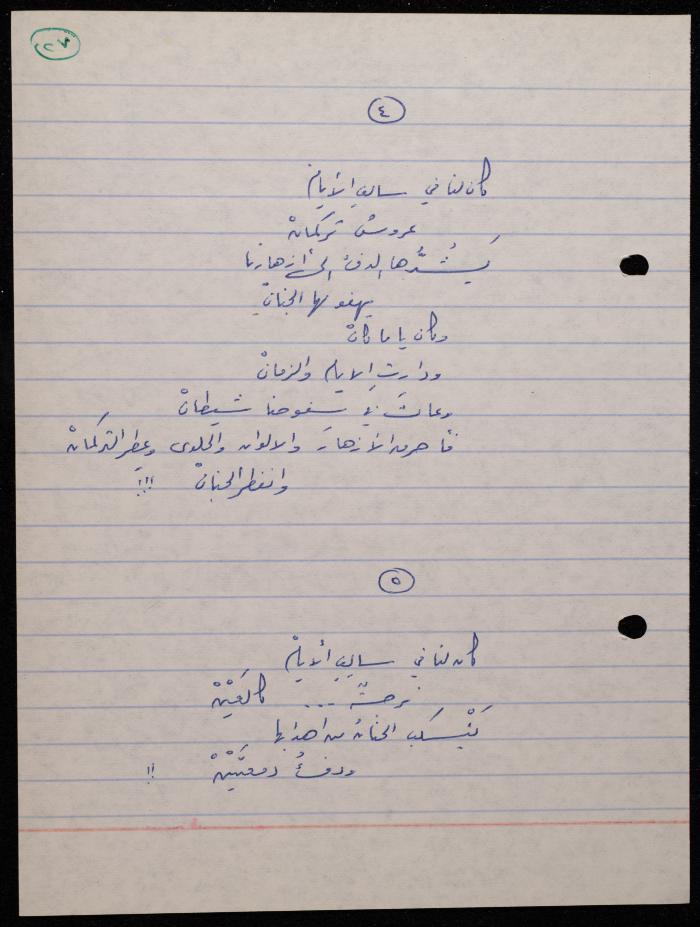 ٤
كان لنا في سالفِ الأيامْ
عروسُ تركمانْ
يَشُدُّها الدفءُ إلى أزهارنا
يهفو لها الجنانْ
وكان يا ما كانْ
ودارتِ الايام والزمانْ
وعاثَ في سفوحنا شيطانْ
فأحرق الأزهارَ والالوان والحلوى وعطر التركمانْ
وانفطر الجنانْ !!!
٥
كان لنا في سالفِ ألأيامْ
نرجسةٌ ... كالعَيْنْ
يَنْسكب الحنان من اهدابها
ودفءُ دمعتَيْنْ !!